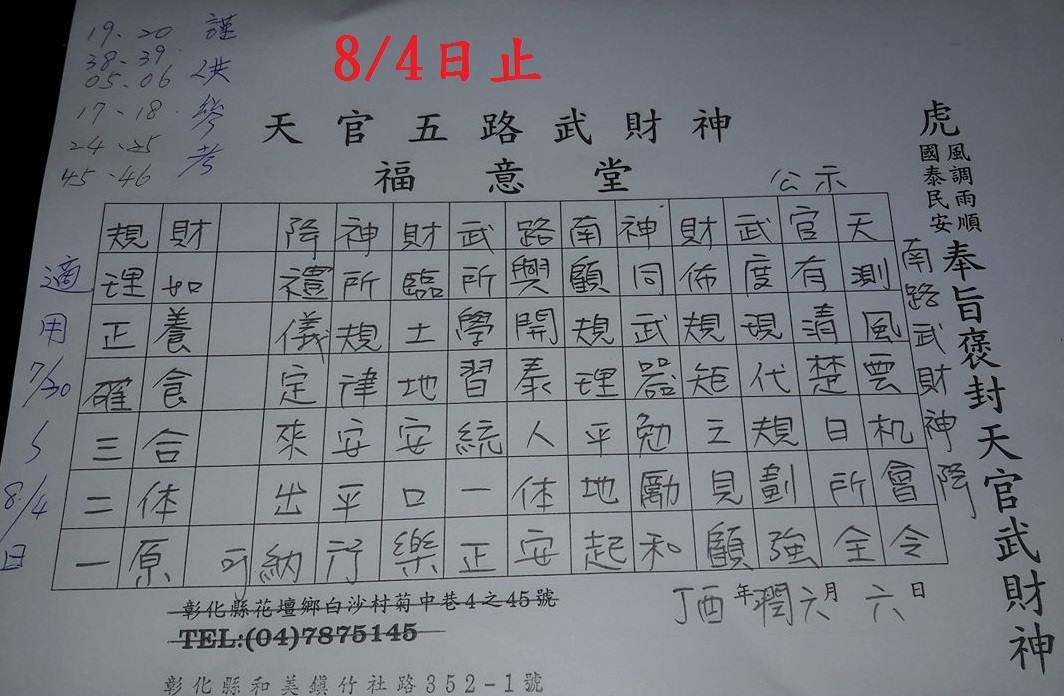 8/4日止
19.20
38-39
05.06
17-18
24.25
45-46
謹供參考
天官五路武財神
福意堂
公示
虎
風調雨順
國泰民安
奉旨褒封天官武財神
南路武財神降
天測風雲机會令
官有清楚日所全
武度現代規劃強
財佈規矩之見顧
神同武器勉勵和
南顧規理平地起
路興開泰人体安
武所學習統一正
財臨土地安口樂
神所規律安平行
降禮儀定來出納
可
財如養食合体原
規理正確三二一
適用7/30~8/4日
丁酉年潤六月六日
彰化縣花壇鄉白沙村菊中巷4之45號
TEL:(04)7875145
彰化縣和美鎮竹社路352-1號